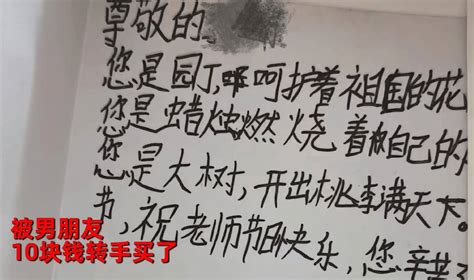 尊敬的
您是园丁,呵护着祖国的花
您是蜡烛燃烧着自己的
您是大树,开出桃李满天下。
节,祝老师节日快乐,您辛苦
被男朋友
10块钱转手买了